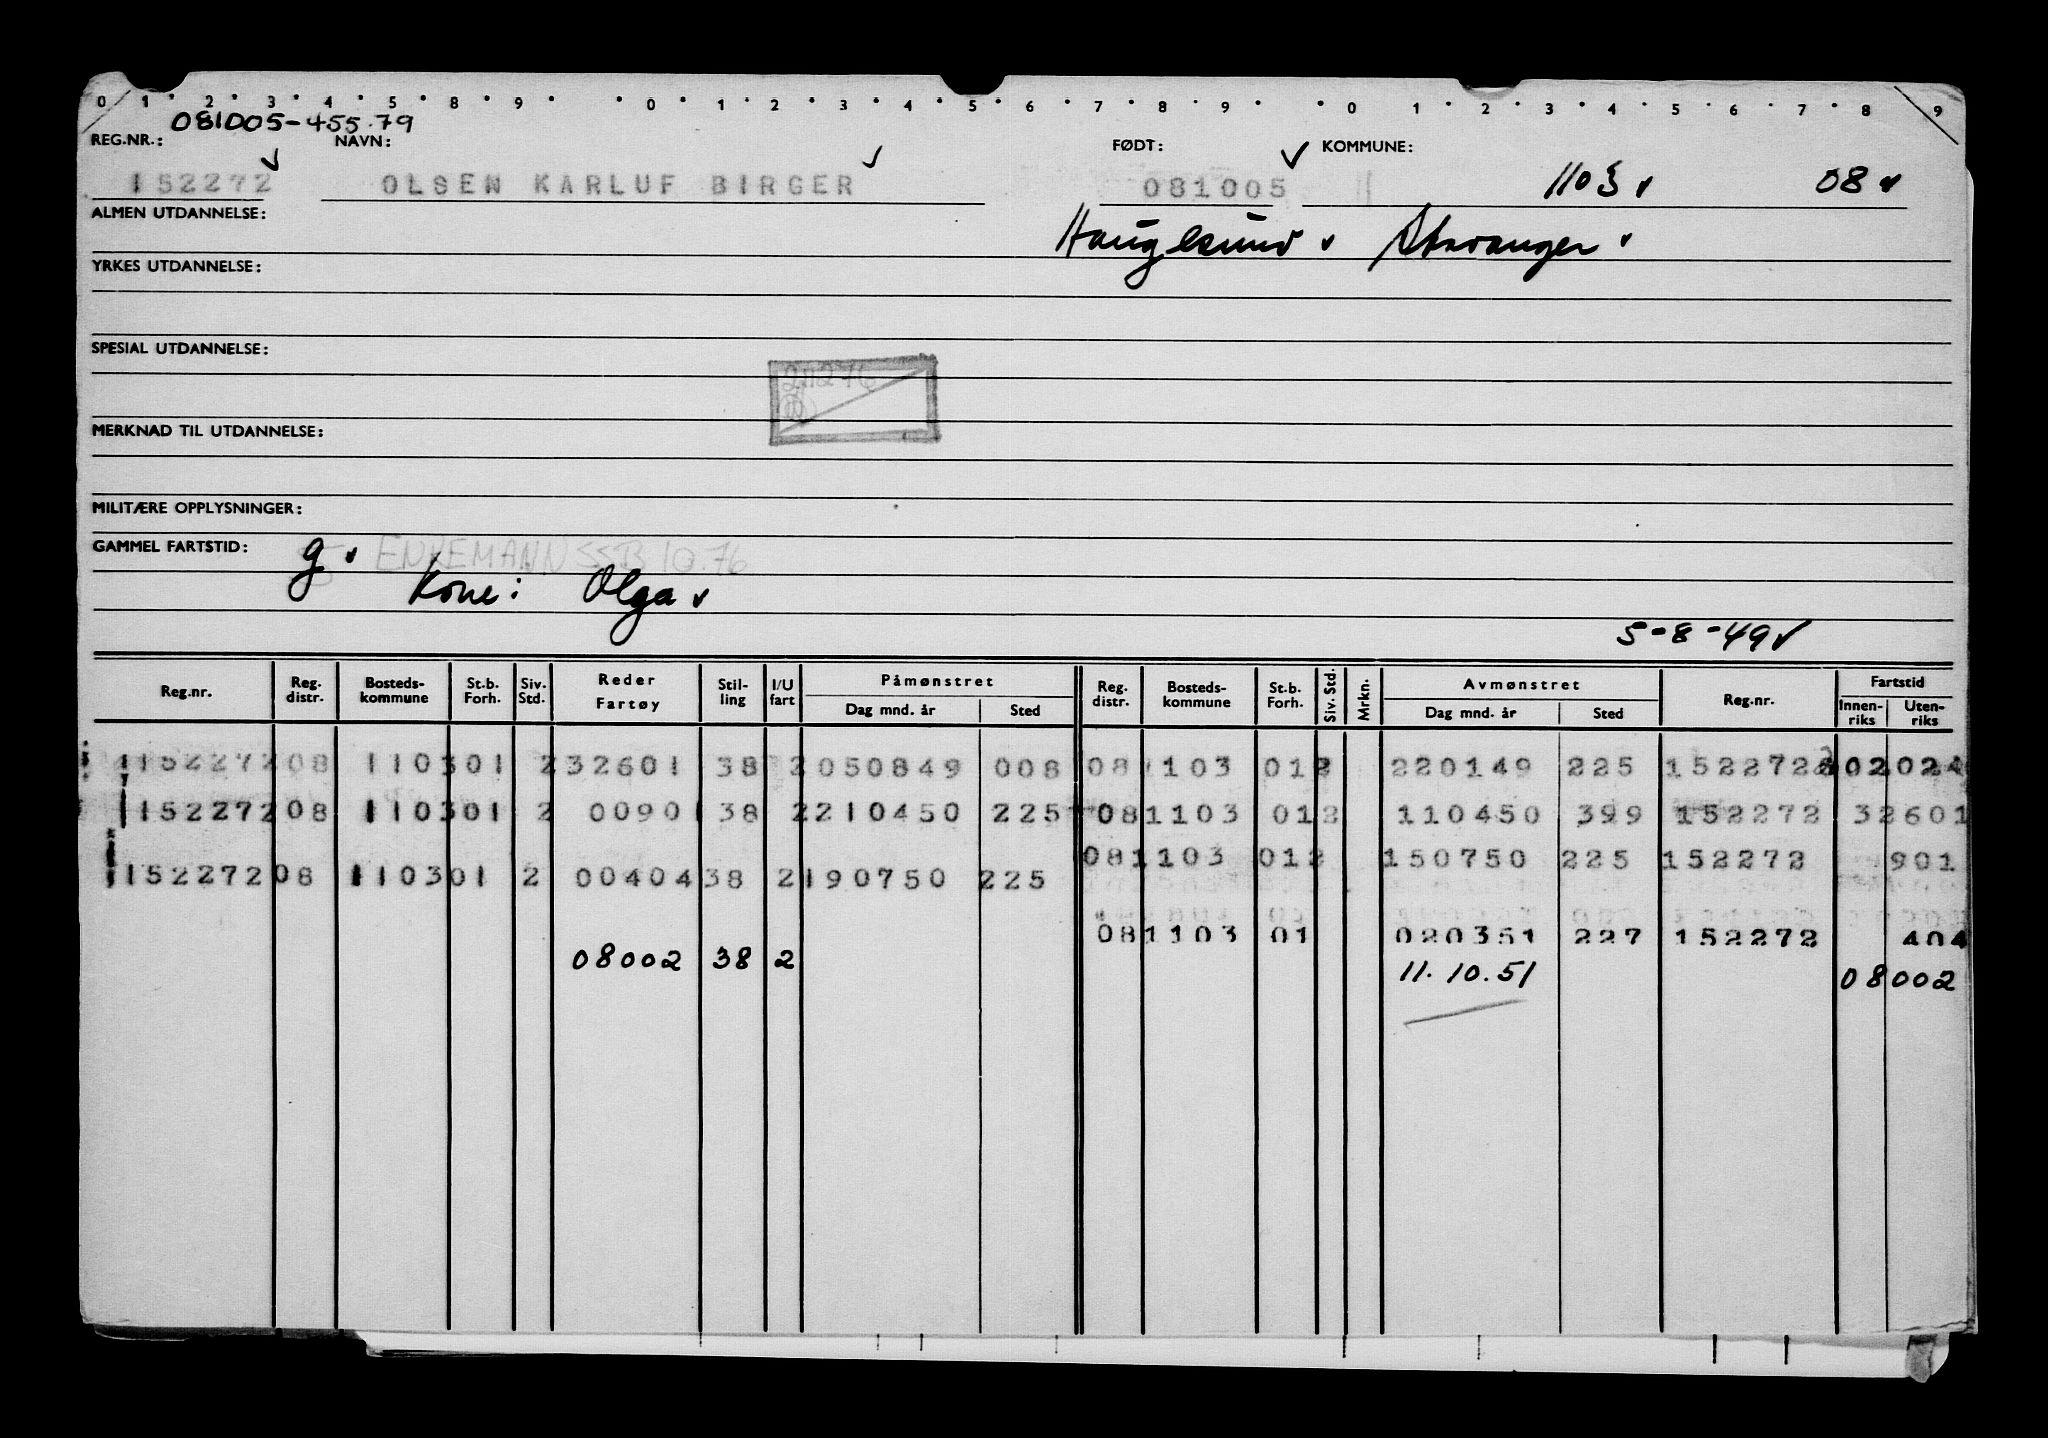 0 1 2 3 4 5 8 9 0 1 2 3 4 5 6 7 8 9 0 1 2 3 4 5 6 7 8 9
081005-455.79
REG.NR.: NAVN: FØDT: KOMMUNE:
152272 OLSEN KARLUF BIRGER 081005 1103 08
ALMEN UTDANNELSE: Haugesund Stavanger
YRKES UTDANNELSE:
SPESIAL UTDANNELSE:
MERKNAD TIL UTDANNELSE:
MILITÆRE OPPLYSNINGER:
GAMMEL FARTSTID: g ENKEMANN SSB 10.76
Kone: Olga
5-8-49
Reg.nr. Reg. distr. Bosteds-kommune St.b. Forh. Siv. Std. Reder Fartøy Stil-ling I/U fart Påmønstret Dag mnd. år Sted Reg. distr. Bosteds-kommune St.b. Forh. Siv. Std. Mrkn. Avmønstret Dag mnd. år Sted Reg.nr. Fartstid Innen-riks Uten-riks
152272 08 1103 01 2 32601 38 2 050849 008 08 1103 01 2 220149 225 152272 02024
152272 08 1103 01 2 00901 38 2 210450 225 08 1103 01 2 110450 399 152272 32601
08 1103 01 2 150750 225 152272 901
152272 08 1103 01 2 00404 38 2 190750 225
08 1103 01 020351 227 152272 404
08002 38 2 11.10.51 08002